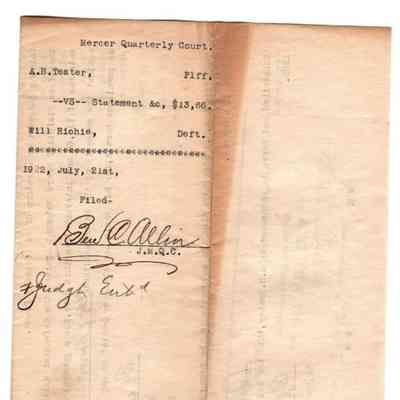 Mercer Quarterly Court.
A.H.Teater, Plff.
--VS-- Statement &c, $13,66.
Will Richie, Deft.
************************
1922, July, 21st,
Filed-
Ben C. Allin
J.M.Q.C.
Judgt Ent'd